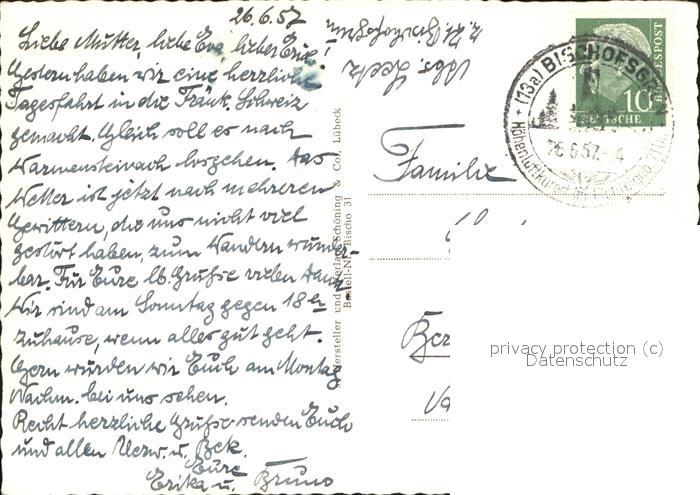 26.6.57
Liebe Mutter, liebe Eva, lieber Erik!
Gestern haben wir eine herrliche
Tagesfahrt in die Fränk. Schweiz
gemacht. Gleich soll es nach
Warmensteinach losgehen. Das
Wetter ist jetzt nach mehreren
Gewittern, die uns nicht viel
gestört haben, zum Wandern wunder-
bar. Für Eure lb. Grüße vielen Dank
Wir sind am Sonntag gegen 18 Uhr
zuhause, wenn alles gut geht.
Gern würden wir Euch am Montag
Nachm. bei uns sehen.
Recht herzliche Grüße senden Euch
und allen Verw. u. Bek.
Eure
Erika u. Bruno
Abs.
z. Zt. Bischofsgrün
Hersteller und Verlag Schöning & Co., Lübeck
Bestell-Nr. Bischo 31
Familie
Ber
(13a) BISCHOFSG
Höhenluftkurort
26.6.57.-4
BUNDESPOST
10
DEUTSCHE
privacy protection (c)
Datenschutz